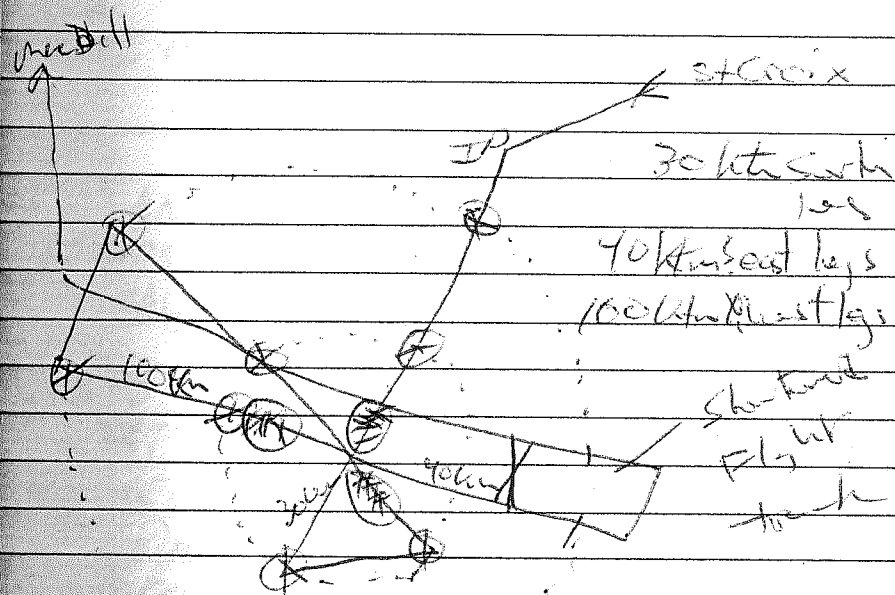 MacDill
St Croix
IP
30 km South
legs
40 km east legs
100 km West legs
100 km
Shortened
Flight
track
40 km
30 km